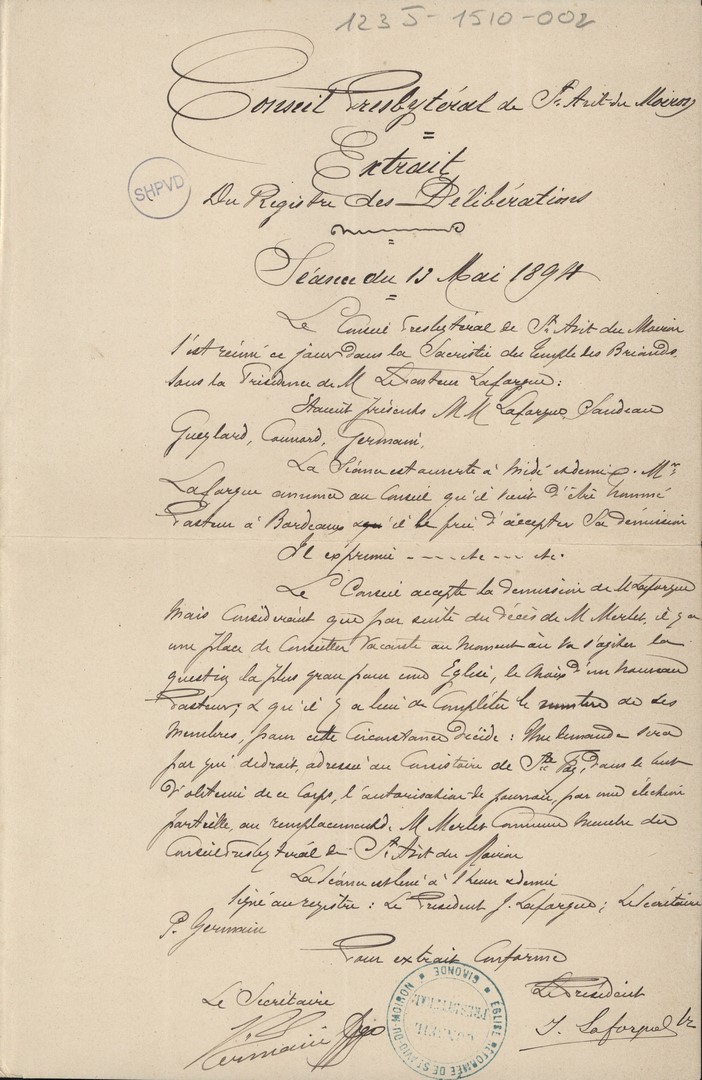 123 J-1510-002
Conseil Presbytéral de St. Avit du Moiron
=
Extrait
SHPVD
Du Registre des Délibérations
=
Séance du 13 Mai 1894
=
Le Conseil Presbytéral de St. Avit du Moiron
s'est réuni ce jour dans la Sacristie du temple des Briands,
sous la Présidence de M Le Pasteur Lafargue :
Etaient présents MM Lafargue,
Gueylard, Germain,
La Séance est ouverte à midi et demi. Mr
Lafargue annonce au Conseil qu'il vient d'être nommé
Pasteur à Bordeaux qu'il le prie d'accepter Sa démission
Il exprime
Le Conseil accepte la demission de M Lafargue
Mais Considérant que par suite du décès de M Merlet, il y a
une place de Conseiller Vacante au moment où va s'agiter la
question la plus grave pour une Eglise, le choix d'un nouveau
Pasteur, & qu'il y a lieu de Compléter le nombre de ses
Membres, pour cette Circonstance décide : Une demande sera
par qui de droit, adressée au Consistoire de Ste Foy, dans le but
d'obtenir de ce Corps, l'autorisation de pourvoir, par une élection
partielle, au remplacement de M Merlet Comme membre du
Conseil Presbytéral de St. Avit du Moiron
La Séance est levée à 1 heure & demie
Signé au registre : Le Président J. Lafargue ; Le Secrétaire
P. Germain
Pour extrait Conforme
Le Secrétaire
Le Président
Germain
J. Lafargue
EGLISE REFORMÉE DE ST AVID-DU-MOIRON * GIRONDE *
CONSEIL
PRESBYTERAL